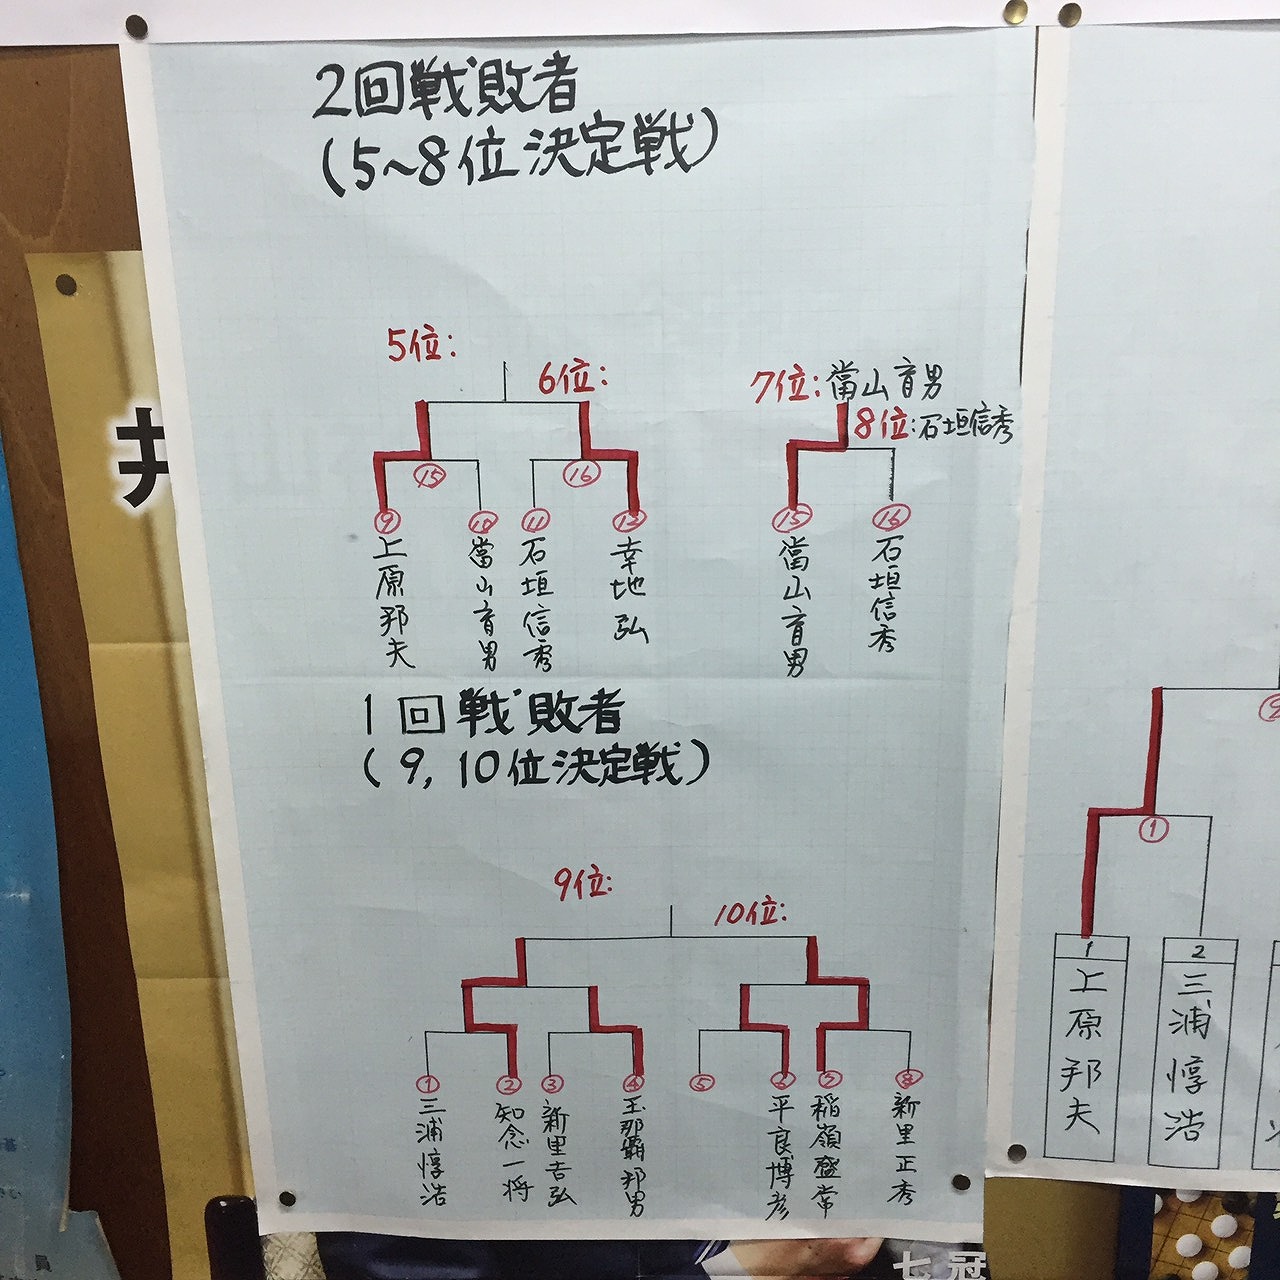 2回戦敗者
(5~8位決定戦)
5位:
6位:
7位:當山育男
8位:石垣信秀
⑮
⑯
⑨
⑩
⑪
⑬
⑮
⑯
上原邦夫
當山育男
石垣信秀
幸地弘
當山育男
石垣信秀
1回戦敗者
(9,10位決定戦)
9位:
10位:
①
②
③
④
⑤
⑥
⑦
⑧
三浦惇浩
知念一将
新里吉弘
玉那覇邦男
平良博彦
稲嶺盛常
新里正秀
①
1
上原邦夫
2
三浦惇浩
七冠